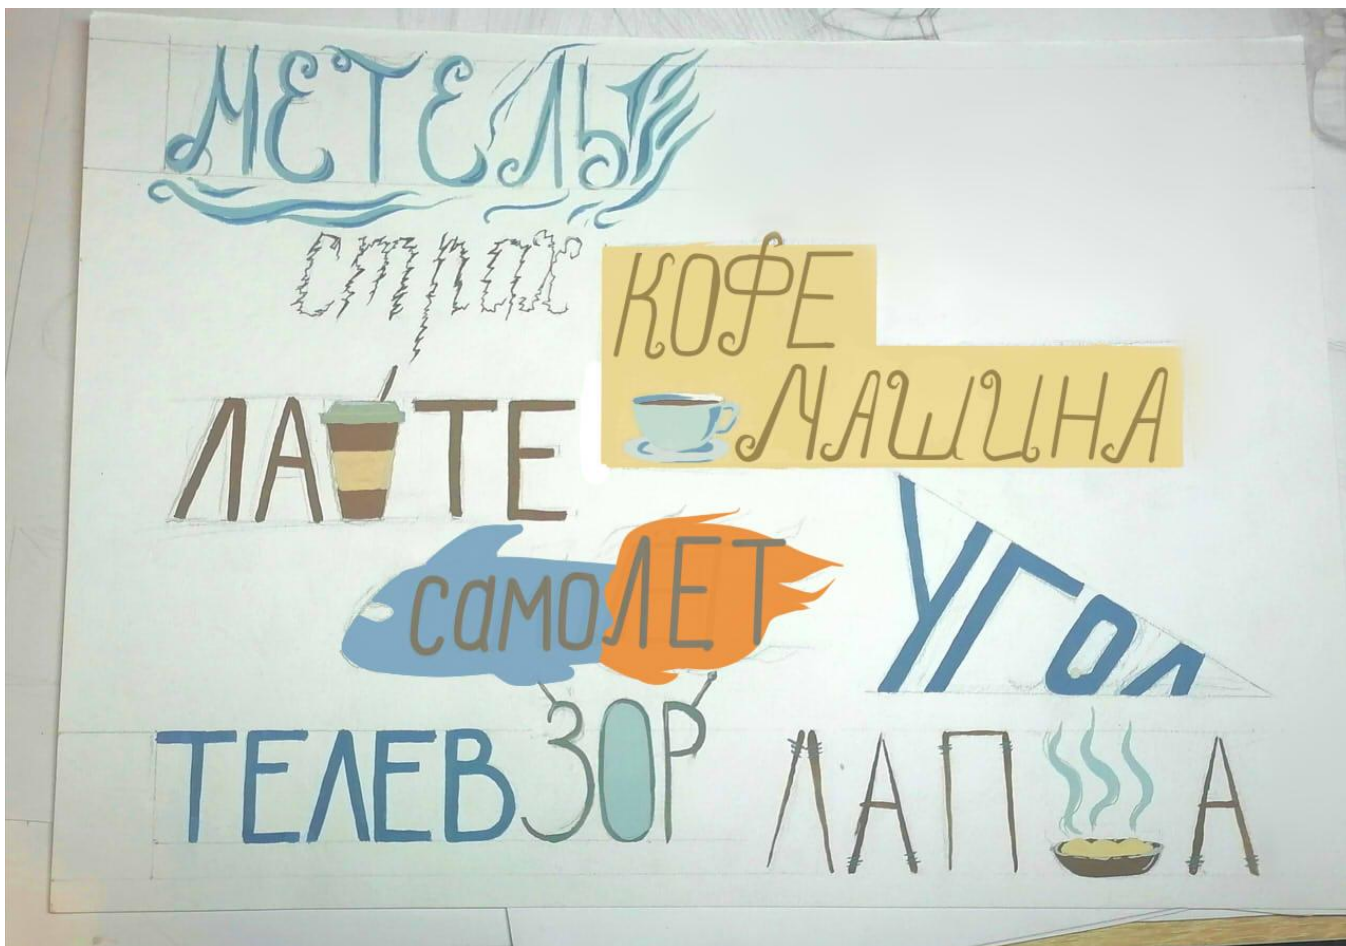 МЕТЕЛЬ
страх
КОФЕ
МАШИНА
ЛАТТЕ
самоЛЕТ
УГОЛ
ТЕЛЕВЗОР
ЛАПША